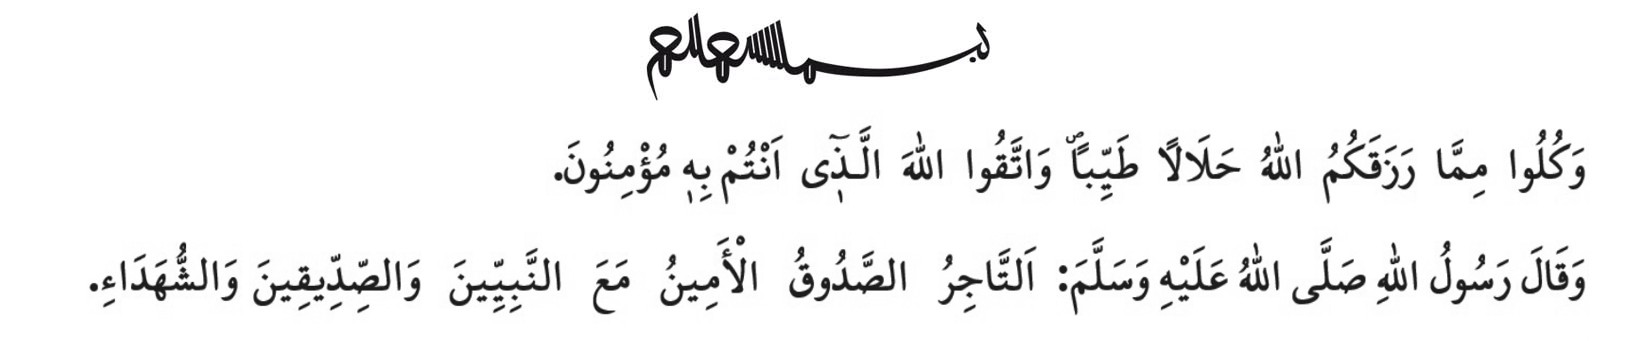 بسم الله الرحمن الرحيم
وَكُلُوا مِمَّا رَزَقَكُمُ اللّٰهُ حَلَالًا طَيِّبًاۖ وَاتَّقُوا اللّٰهَ الَّذ۪ٓي اَنْتُمْ بِه۪ مُؤْمِنُونَ.
وَقَالَ رَسُولُ اللّٰهِ صَلَّى اللّٰهُ عَلَيْهِ وَسَلَّمَ: اَلتَّاجِرُ الصَّدُوقُ الْأَمِينُ مَعَ النَّبِيِّينَ وَالصِّدِّيقِينَ وَالشُّهَدَاءِ.